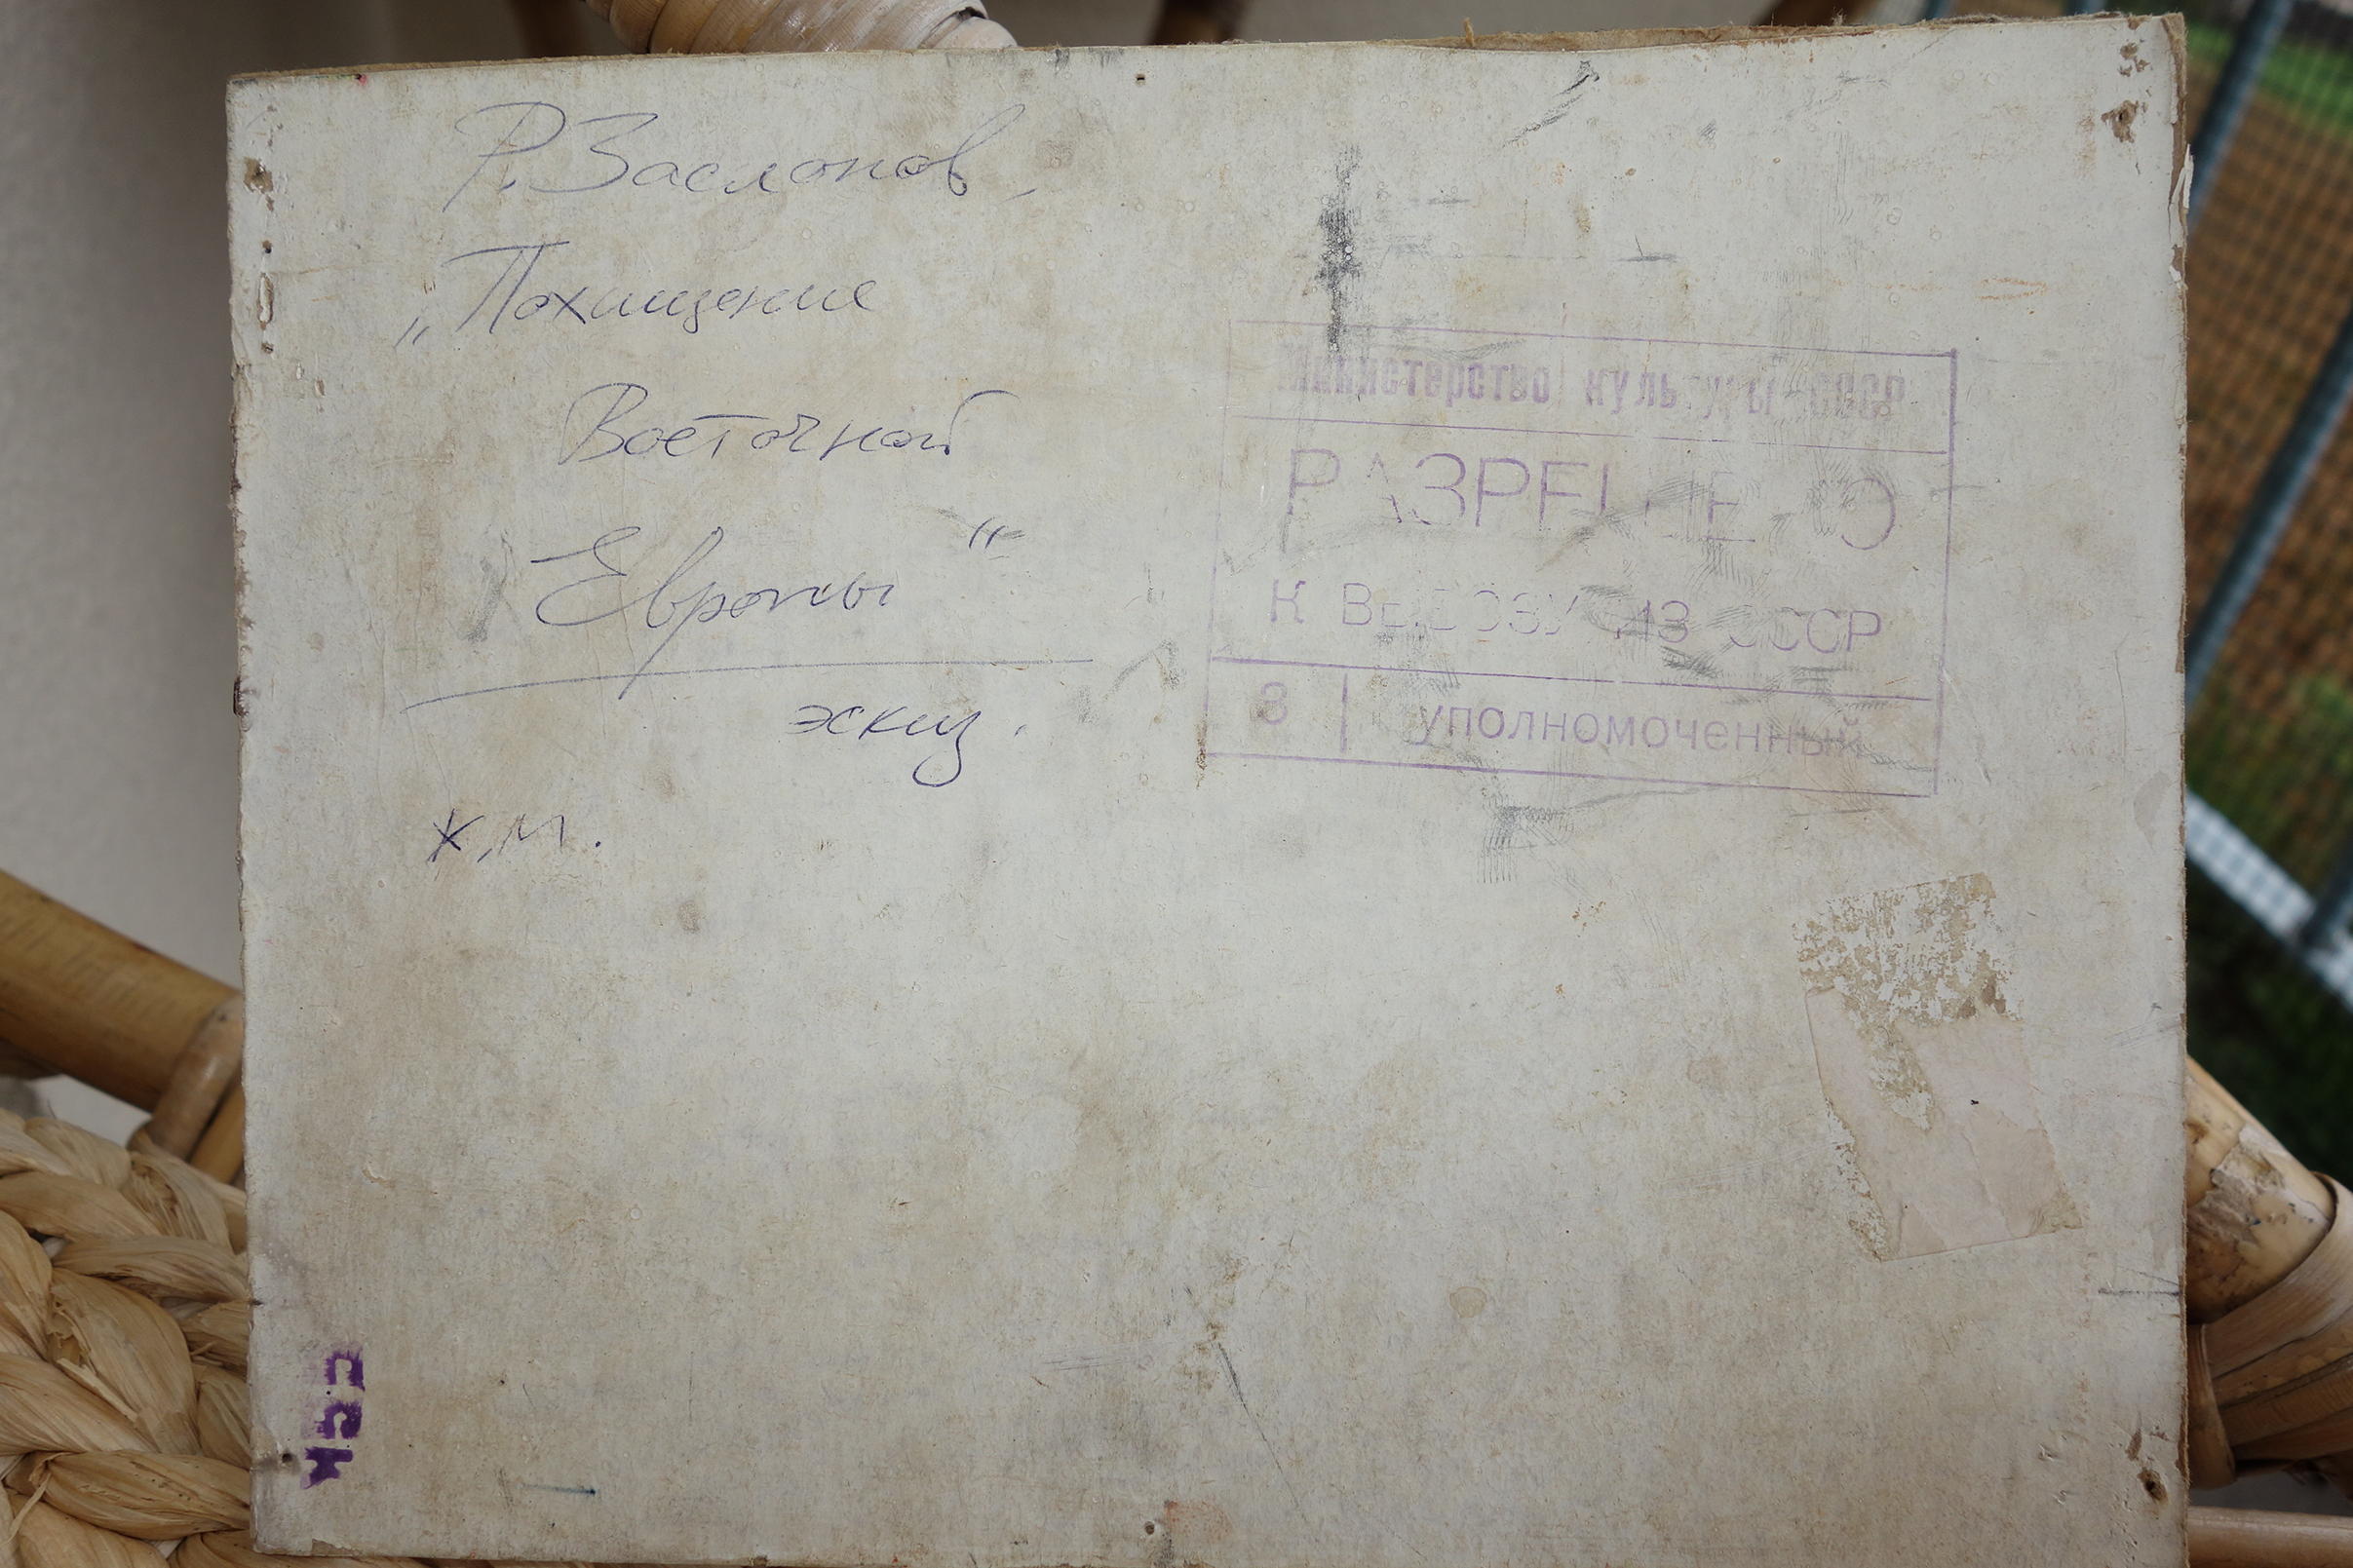 Р. Заслонов,
„Похищение
Восточной
Европы“
эскиз.
х.м.
Министерство культуры СССР
РАЗРЕШЕНО
К ВЫВОЗУ ИЗ СССР
8 уполномоченный